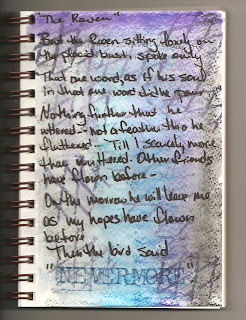 "The Raven"
But the Raven, sitting lonely on
the placid bust, spoke only
That one word, as if his soul
in that one word did he pour
Nothing further that he
uttered-- not a feather then he
fluttered-- Till I scarcely more
than muttered. Other friends
have flown before--
On the morrow he will leave me
as my hopes have flown
before
Then the bird said
"NEVERMORE"